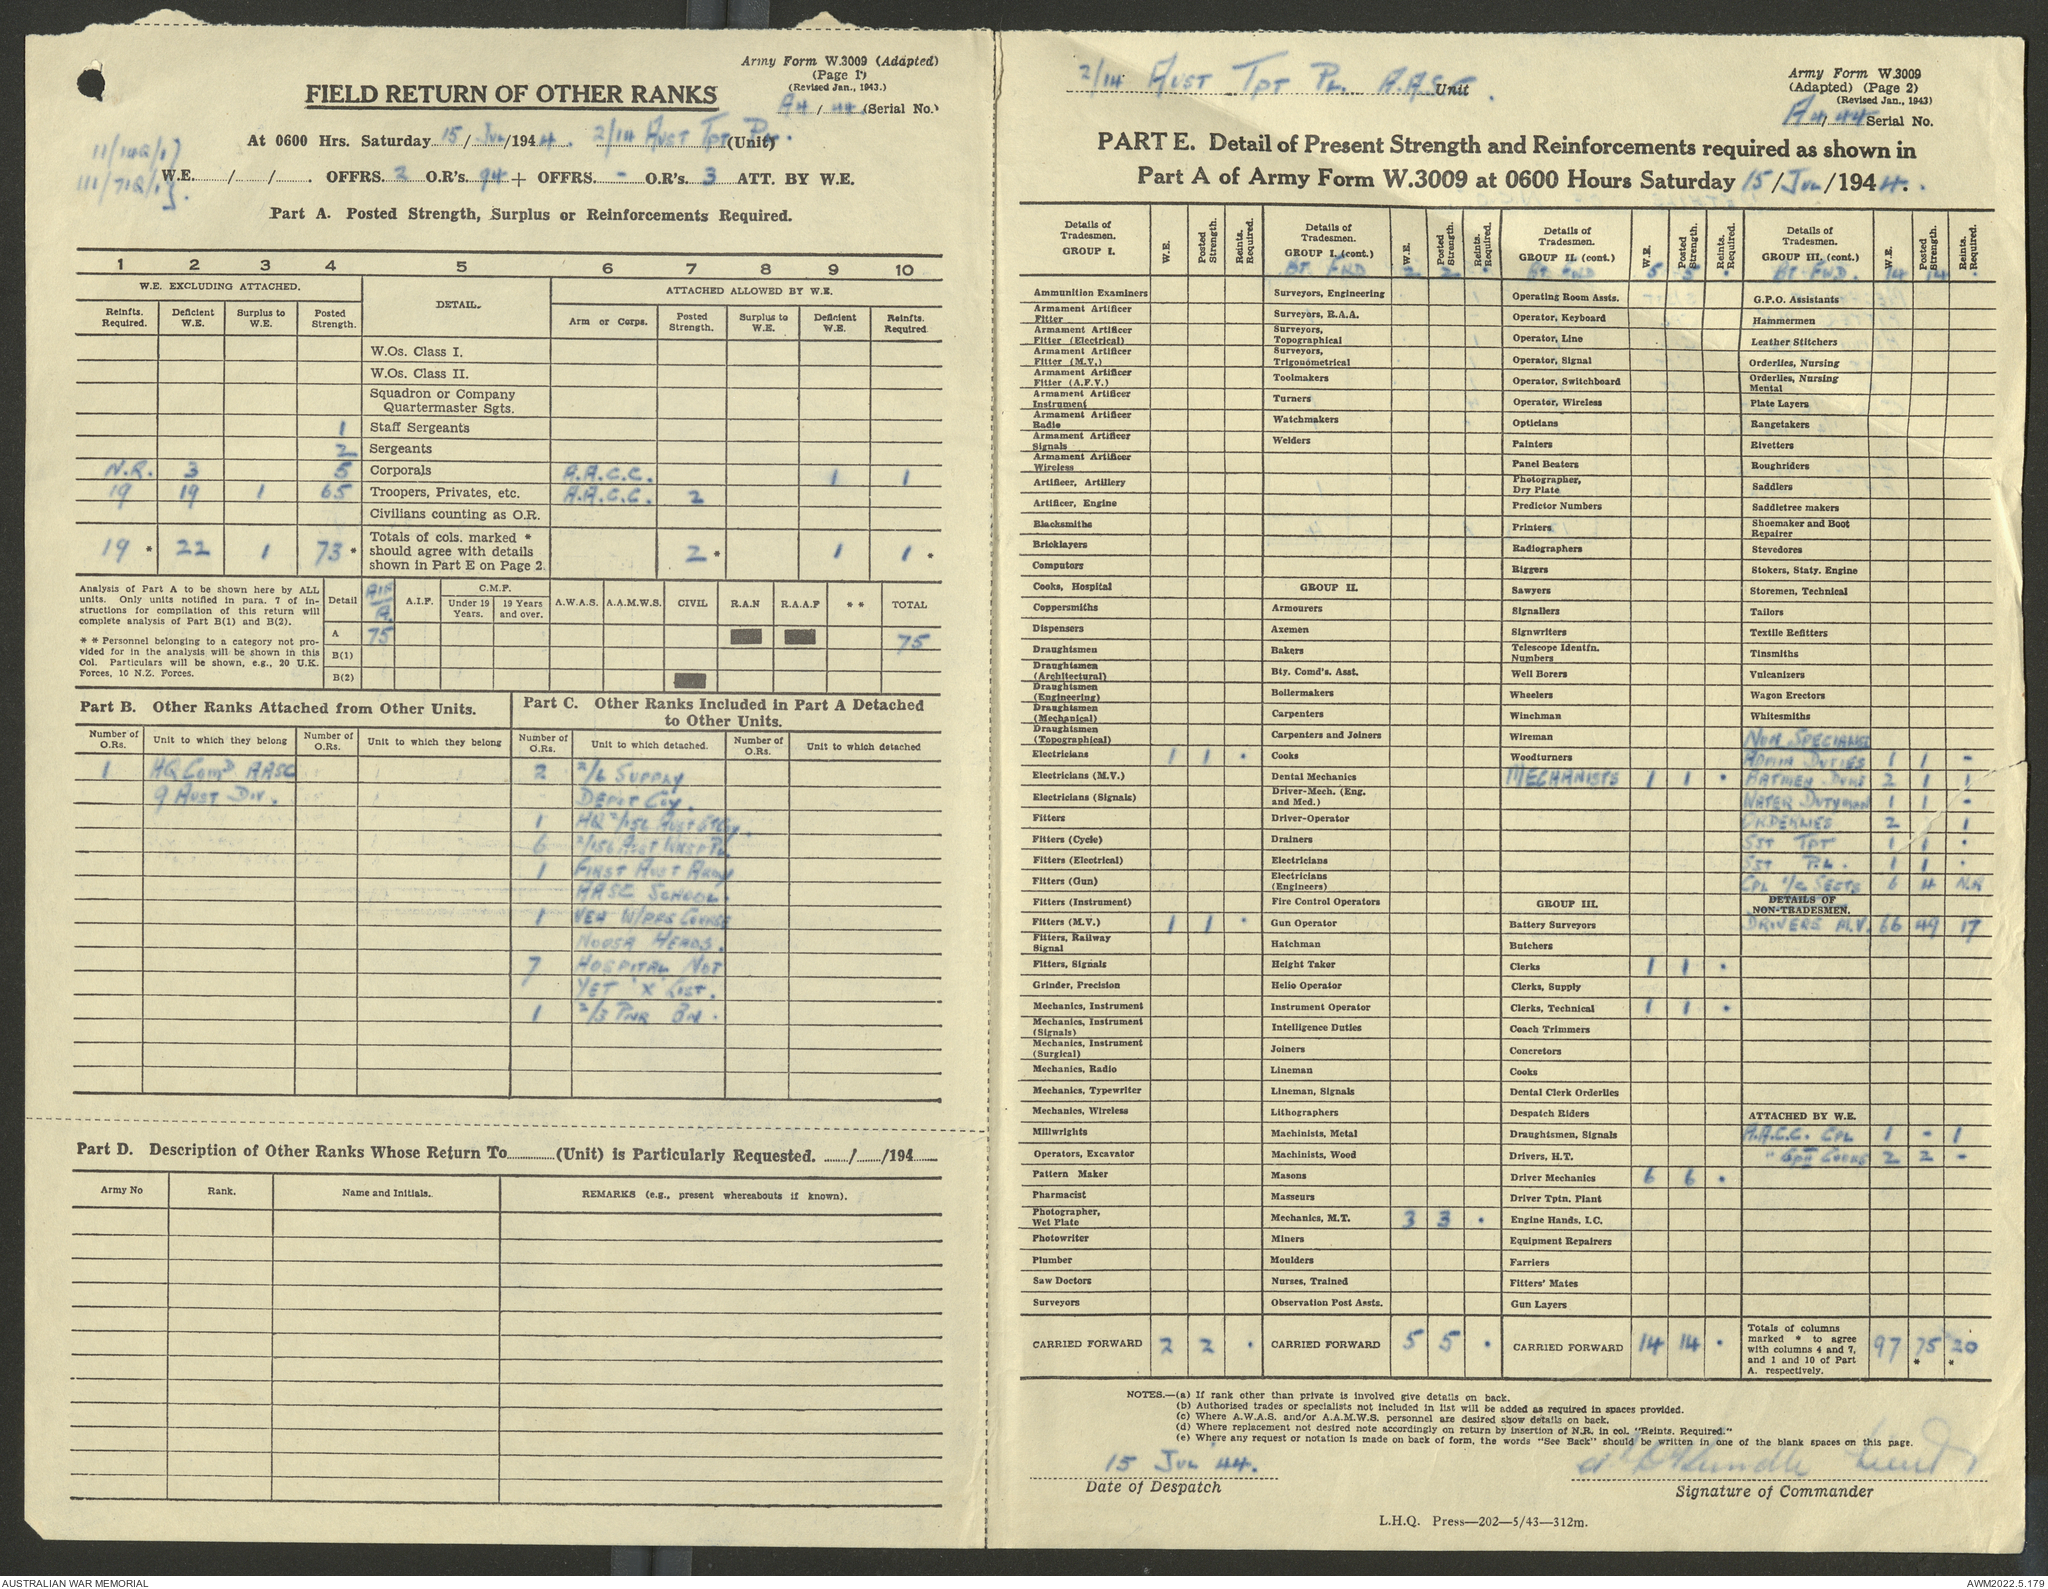 Army Form W.3009 (Adapted)
(Page 1)
(Revised Jan., 1943.)
FIELD RETURN OF OTHER RANKS
A4 / 44 (Serial No.)
At 0600 Hrs. Saturday 15 / JUL /1944. 2/14 AUST TPT PL. (Unit)
W.E. / / . OFFRS. 2 O.R's. 94 + OFFRS. - O.R's. 3 ATT. BY W.E.
Part A. Posted Strength, Surplus or Reinforcements Required.
1 2 3 4 5 6 7 8 9 10
W.E. EXCLUDING ATTACHED. DETAIL. ATTACHED ALLOWED BY W.E.
Reinfts. Required. Deficient W.E. Surplus to W.E. Posted Strength. Arm or Corps. Posted Strength. Surplus to W.E. Deficient W.E. Reinfts. Required
W.Os. Class I.
W.Os. Class II.
Squadron or Company
Quartermaster Sgts.
1 Staff Sergeants
2 Sergeants
N.R. 3 5 Corporals A.A.C.C. 1 1
19 19 1 65 Troopers, Privates, etc. A.A.C.C. 2
Civilians counting as O.R.
19 * 22 1 73 * Totals of cols. marked * should agree with details shown in Part E on Page 2. 2 * 1 1 *
Analysis of Part A to be shown here by ALL
units. Only units notified in para. 7 of in-
structions for compilation of this return will
complete analysis of Part B(1) and B(2).
* * Personnel belonging to a category not pro-
vided for in the analysis will be shown in this
Col. Particulars will be shown, e.g., 20 U.K.
Forces, 10 N.Z. Forces.
Detail A.I.F. C.M.F. Under 19 Years. 19 Years and over. A.W.A.S. A.A.M.W.S. CIVIL R.A.N R.A.A.F * * TOTAL
A 75 75
B(1)
B(2)
Part B. Other Ranks Attached from Other Units.
Number of O.Rs. Unit to which they belong Number of O.Rs. Unit to which they belong
1 HQ COMD AASC
9 AUST DIV.
Part C. Other Ranks Included in Part A Detached
to Other Units.
Number of O.Rs. Unit to which detached. Number of O.Rs. Unit to which detached
2 2/6 SUPPLY
DEPOT COY.
1 HQ 2/156 AUST GT COY.
6 2/156 AUST WKSP PL.
1 FIRST AUST ARMY
AASC SCHOOL.
1 VEH W/PRS COURSE
NOOSA HEADS.
7 HOSPITAL NOT
YET 'X' LIST.
1 2/3 PNR BN.
Part D. Description of Other Ranks Whose Return To (Unit) is Particularly Requested. / /194
Army No Rank. Name and Initials. REMARKS (e.g., present whereabouts if known).
2/14 AUST TPT PL. A.A.S.C. Unit
Army Form W.3009
(Adapted) (Page 2)
(Revised Jan., 1943)
A4/44 Serial No.
PART E. Detail of Present Strength and Reinforcements required as shown in
Part A of Army Form W.3009 at 0600 Hours Saturday 15/JUL/1944.
Details of Tradesmen. GROUP I. W.E. Posted Strength. Reints. Required.
Ammunition Examiners
Armament Artificer Fitter
Armament Artificer Fitter (Electrical)
Armament Artificer Fitter (M.V.)
Armament Artificer Fitter (A.F.V.)
Armament Artificer Instrument
Armament Artificer Radio
Armament Artificer Signals
Armament Artificer Wireless
Artificer, Artillery
Artificer, Engine
Blacksmiths
Bricklayers
Computors
Cooks, Hospital
Coppersmiths
Dispensers
Draughtsmen
Draughtsmen (Architectural)
Draughtsmen (Engineering)
Draughtsmen (Mechanical)
Draughtsmen (Topographical)
Electricians 1 1 .
Electricians (M.V.)
Electricians (Signals)
Fitters
Fitters (Cycle)
Fitters (Electrical)
Fitters (Gun)
Fitters (Instrument)
Fitters (M.V.) 1 1 .
Fitters, Railway Signal
Fitters, Signals
Grinder, Precision
Mechanics, Instrument
Mechanics, Instrument (Signals)
Mechanics, Instrument (Surgical)
Mechanics, Radio
Mechanics, Typewriter
Mechanics, Wireless
Millwrights
Operators, Excavator
Pattern Maker
Pharmacist
Photographer, Wet Plate
Photowriter
Plumber
Saw Doctors
Surveyors
CARRIED FORWARD 2 2 .
Details of Tradesmen. GROUP I. (cont.) W.E. Posted Strength. Reints. Required.
BT. FWD 2 2 .
Surveyors, Engineering
Surveyors, R.A.A.
Surveyors, Topographical
Surveyors, Trigonometrical
Toolmakers
Turners
Watchmakers
Welders
GROUP II.
Armourers
Axemen
Bakers
Bty. Comd's. Asst.
Boilermakers
Carpenters
Carpenters and Joiners
Cooks
Dental Mechanics
Driver-Mech. (Eng. and Med.)
Driver-Operator
Drainers
Electricians
Electricians (Engineers)
Fire Control Operators
Gun Operator
Hatchman
Height Taker
Helio Operator
Instrument Operator
Intelligence Duties
Joiners
Lineman
Lineman, Signals
Lithographers
Machinists, Metal
Machinists, Wood
Masons
Masseurs
Mechanics, M.T. 3 3 .
Miners
Moulders
Nurses, Trained
Observation Post Assts.
CARRIED FORWARD 5 5 .
Details of Tradesmen. GROUP II. (cont.) W.E. Posted Strength. Reints. Required.
BT. FWD 5 5 .
Operating Room Assts.
Operator, Keyboard
Operator, Line
Operator, Signal
Operator, Switchboard
Operator, Wireless
Opticians
Painters
Panel Beaters
Photographer, Dry Plate
Predictor Numbers
Printers
Radiographers
Riggers
Sawyers
Signallers
Signwriters
Telescope Identfn. Numbers
Well Borers
Wheelers
Winchman
Wireman
Woodturners
MECHANISTS 1 1 .
GROUP III.
Battery Surveyors
Butchers
Clerks 1 1 .
Clerks, Supply
Clerks, Technical 1 1 .
Coach Trimmers
Concretors
Cooks
Dental Clerk Orderlies
Despatch Riders
Draughtsmen, Signals
Drivers, H.T.
Driver Mechanics 6 6 .
Driver Tptn. Plant
Engine Hands, I.C.
Equipment Repairers
Farriers
Fitters' Mates
Gun Layers
CARRIED FORWARD 14 14 .
Details of Tradesmen. GROUP III. (cont.) W.E. Posted Strength. Reints. Required.
BT. FWD. 14 14 .
G.P.O. Assistants
Hammermen
Leather Stitchers
Orderlies, Nursing
Orderlies, Nursing Mental
Plate Layers
Rangetakers
Rivetters
Roughriders
Saddlers
Saddletree makers
Shoemaker and Boot Repairer
Stevedores
Stokers, Staty. Engine
Storemen, Technical
Tailors
Textile Refitters
Tinsmiths
Vulcanizers
Wagon Erectors
Whitesmiths
NON SPECIALIST
ADMIN DUTIES 1 1 -
BATMEN DVRS 2 1 1
WATER DUTYMAN 1 1 -
ORDERLIES 2 1
SJT TPT 1 1 .
SJT PL. 1 1 .
CPL I/C SECTS 6 4 N.R
DETAILS OF NON-TRADESMEN.
DRIVERS M.V. 66 49 17
ATTACHED BY W.E.
A.A.C.C. CPL 1 - 1
" GPII COOKS 2 2 -
Totals of columns marked * to agree with columns 4 and 7, and 1 and 10 of Part A. respectively. 97 75 * 20 *
NOTES.—(a) If rank other than private is involved give details on back.
(b) Authorised trades or specialists not included in list will be added as required in spaces provided.
(c) Where A.W.A.S. and/or A.A.M.W.S. personnel are desired show details on back.
(d) Where replacement not desired note accordingly on return by insertion of N.R. in col. "Reints. Required."
(e) Where any request or notation is made on back of form, the words "See Back" should be written in one of the blank spaces on this page.
15 JUL 44.
Date of Despatch
Lieut
Signature of Commander
L.H.Q. Press—202—5/43—312m.
AUSTRALIAN WAR MEMORIAL
AWM2022.5.179